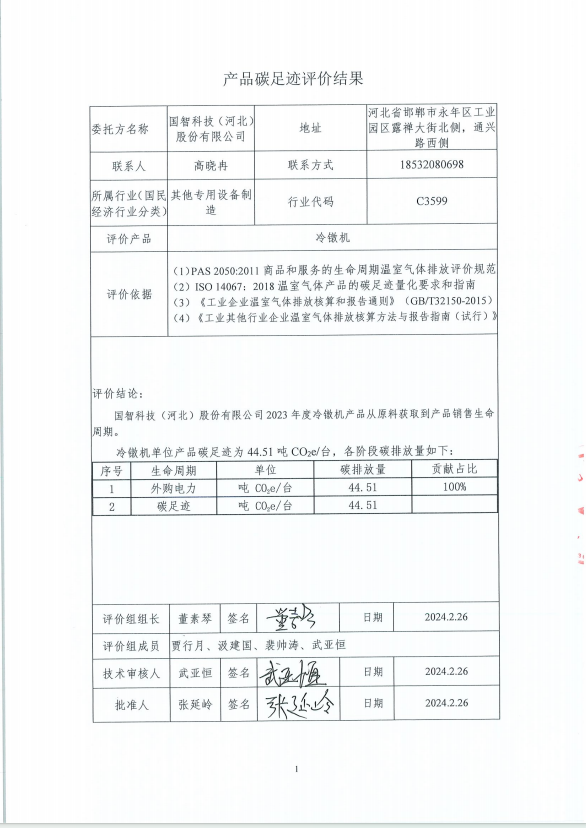 产品碳足迹评价结果
委托方名称
国智科技（河北）
股份有限公司
地址
河北省邯郸市永年区工业
园区露禅大街北侧，通兴
路西侧
联系人
高晓冉
联系方式
18532080698
所属行业（国民
经济行业分类）
其他专用设备制
造
行业代码
C3599
评价产品
冷镦机
评价依据
（1）PAS 2050:2011 商品和服务的生命周期温室气体排放评价规范
（2）ISO 14067：2018 温室气体产品的碳足迹量化要求和指南
（3）《工业企业温室气体排放核算和报告通则》（GB/T32150-2015）
（4）《工业其他行业企业温室气体排放核算方法与报告指南（试行）》
评价结论：
国智科技（河北）股份有限公司 2023 年度冷镦机产品从原料获取到产品销售生命
周期。
冷镦机单位产品碳足迹为 44.51 吨 CO₂e/台，各阶段碳排放量如下：
序号 生命周期 单位 碳排放量 贡献占比
1 外购电力 吨 CO₂e/台 44.51 100%
2 碳足迹 吨 CO₂e/台 44.51
评价组组长 董素琴 签名 董素琴 日期 2024.2.26
评价组成员 贾行月、汲建国、裴帅涛、武亚恒
技术审核人 武亚恒 签名 武亚恒 日期 2024.2.26
批准人 张延岭 签名 张延岭 日期 2024.2.26
1